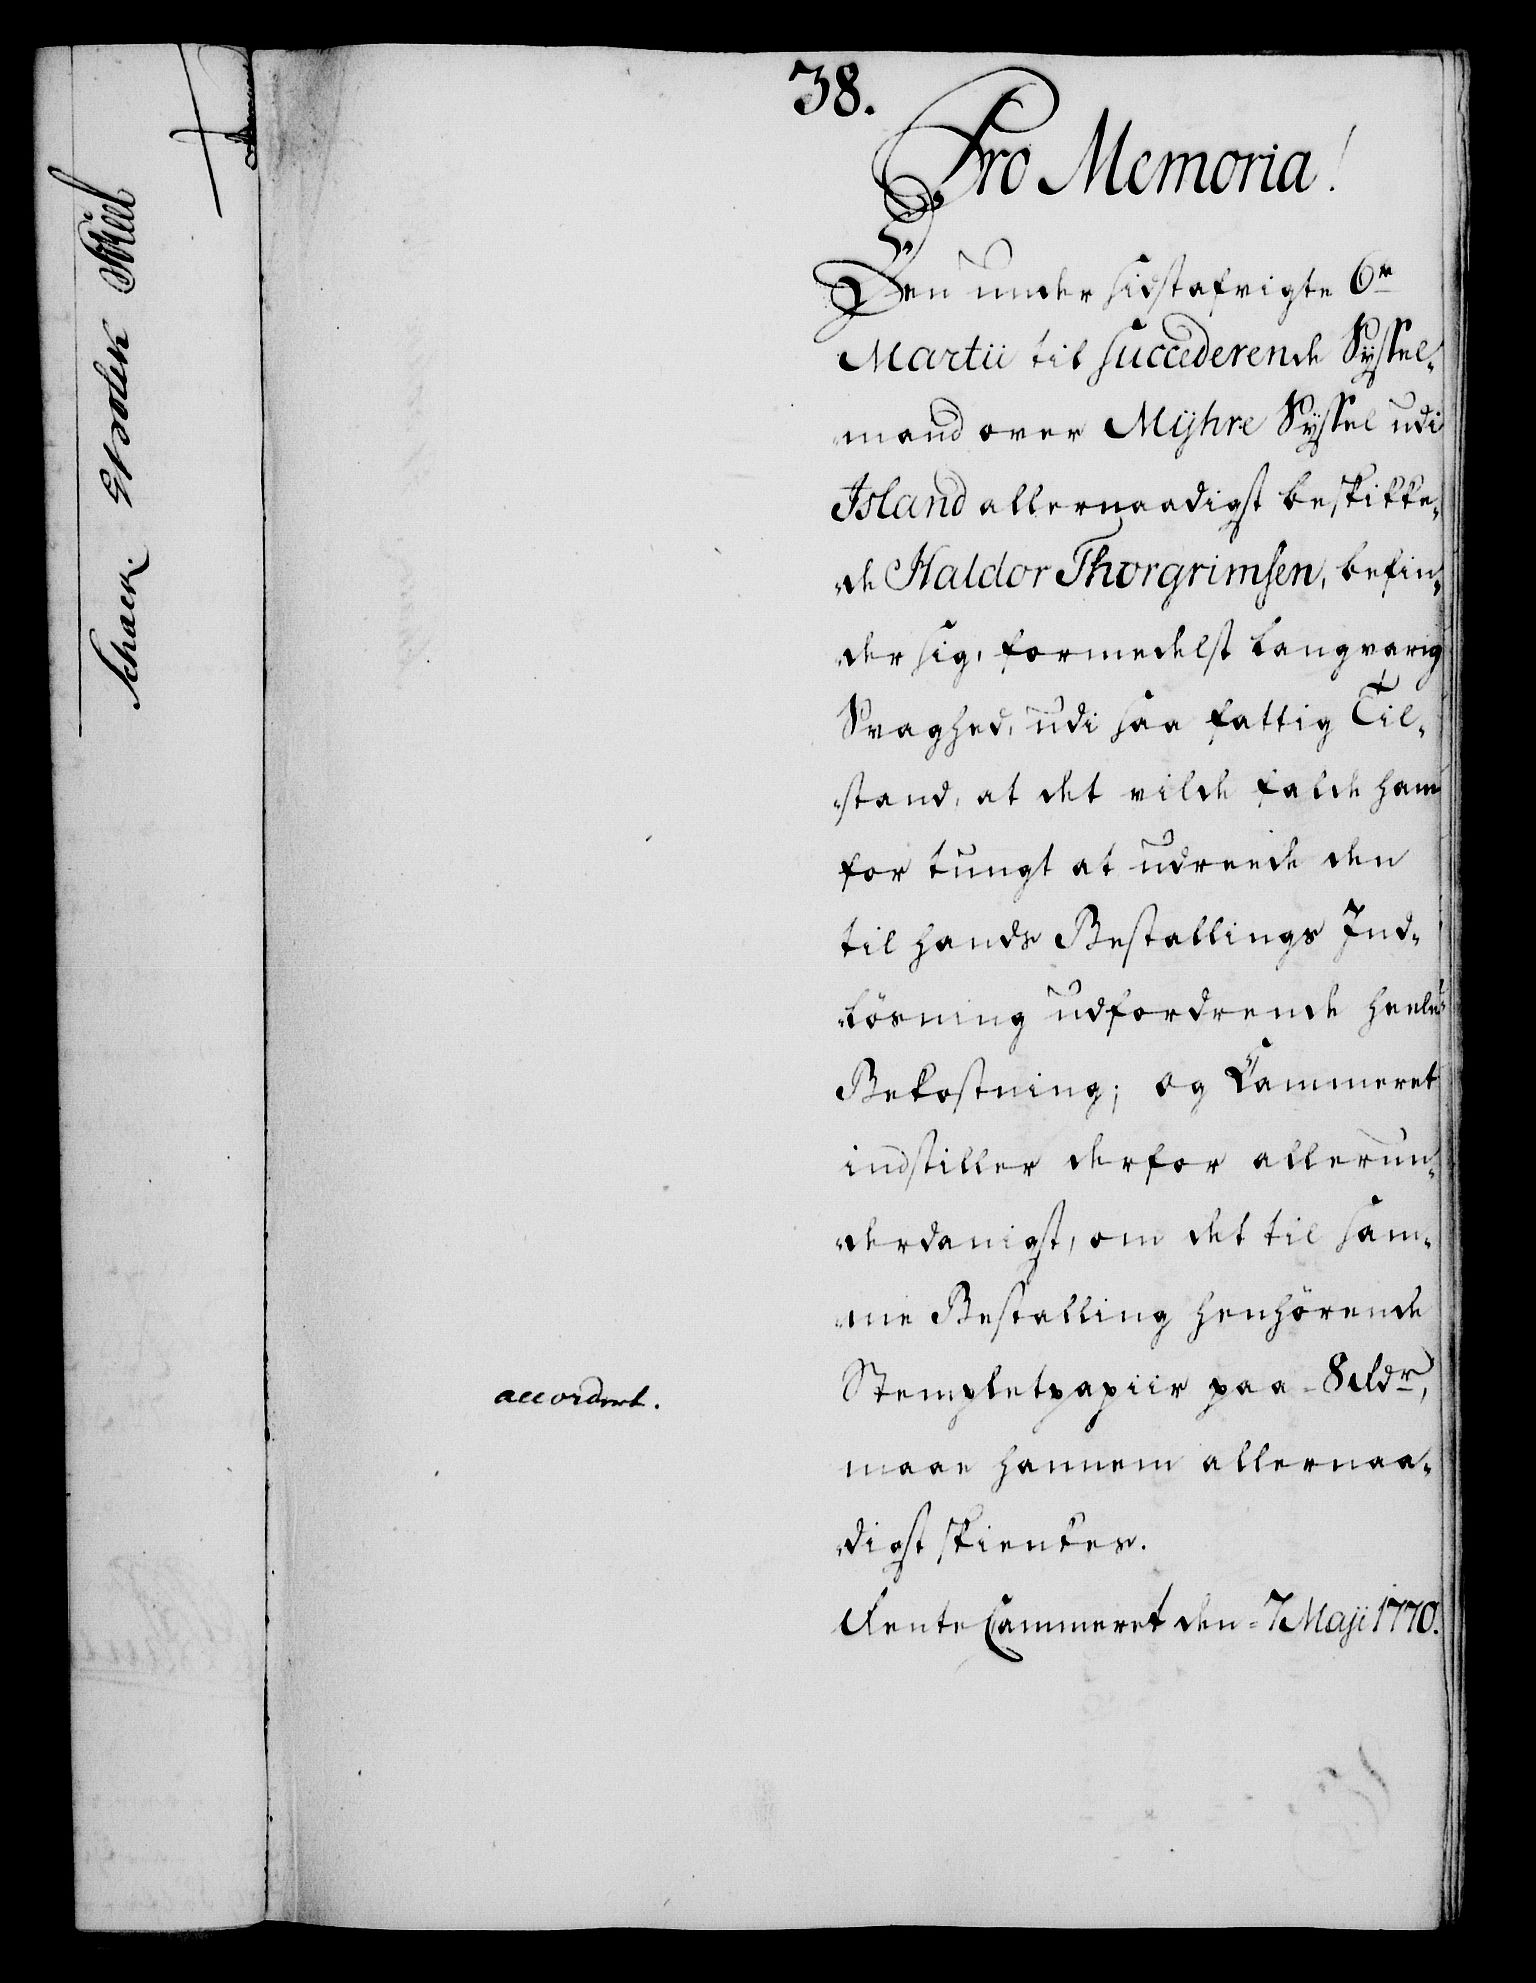 38.
Pro Memoria!
Den under sidstafvigte 6te
Martii til succederende Syssel-
mand over Mÿhre Syssel udi
Island allernaadigst beskikke-
de Haldor Thorgrimsen, befin-
der sig, formedelst langvarig
Svaghed, udi saa fattig Til-
stand, at det vilde falde ham
for tungt at udreede den
til hands Bestallings Ind-
lösning udfordrende heele
Bekostning; og Cammeret
indstiller derfor allerun-
derdanigst, om det til sam-
me Bestalling henhörende
Stempletpapiir paa 8 Rdr,
accordert.
maae hannem allernaa-
digst skienkes.
RenteCammeret den 7 Maji 1770.
Schack